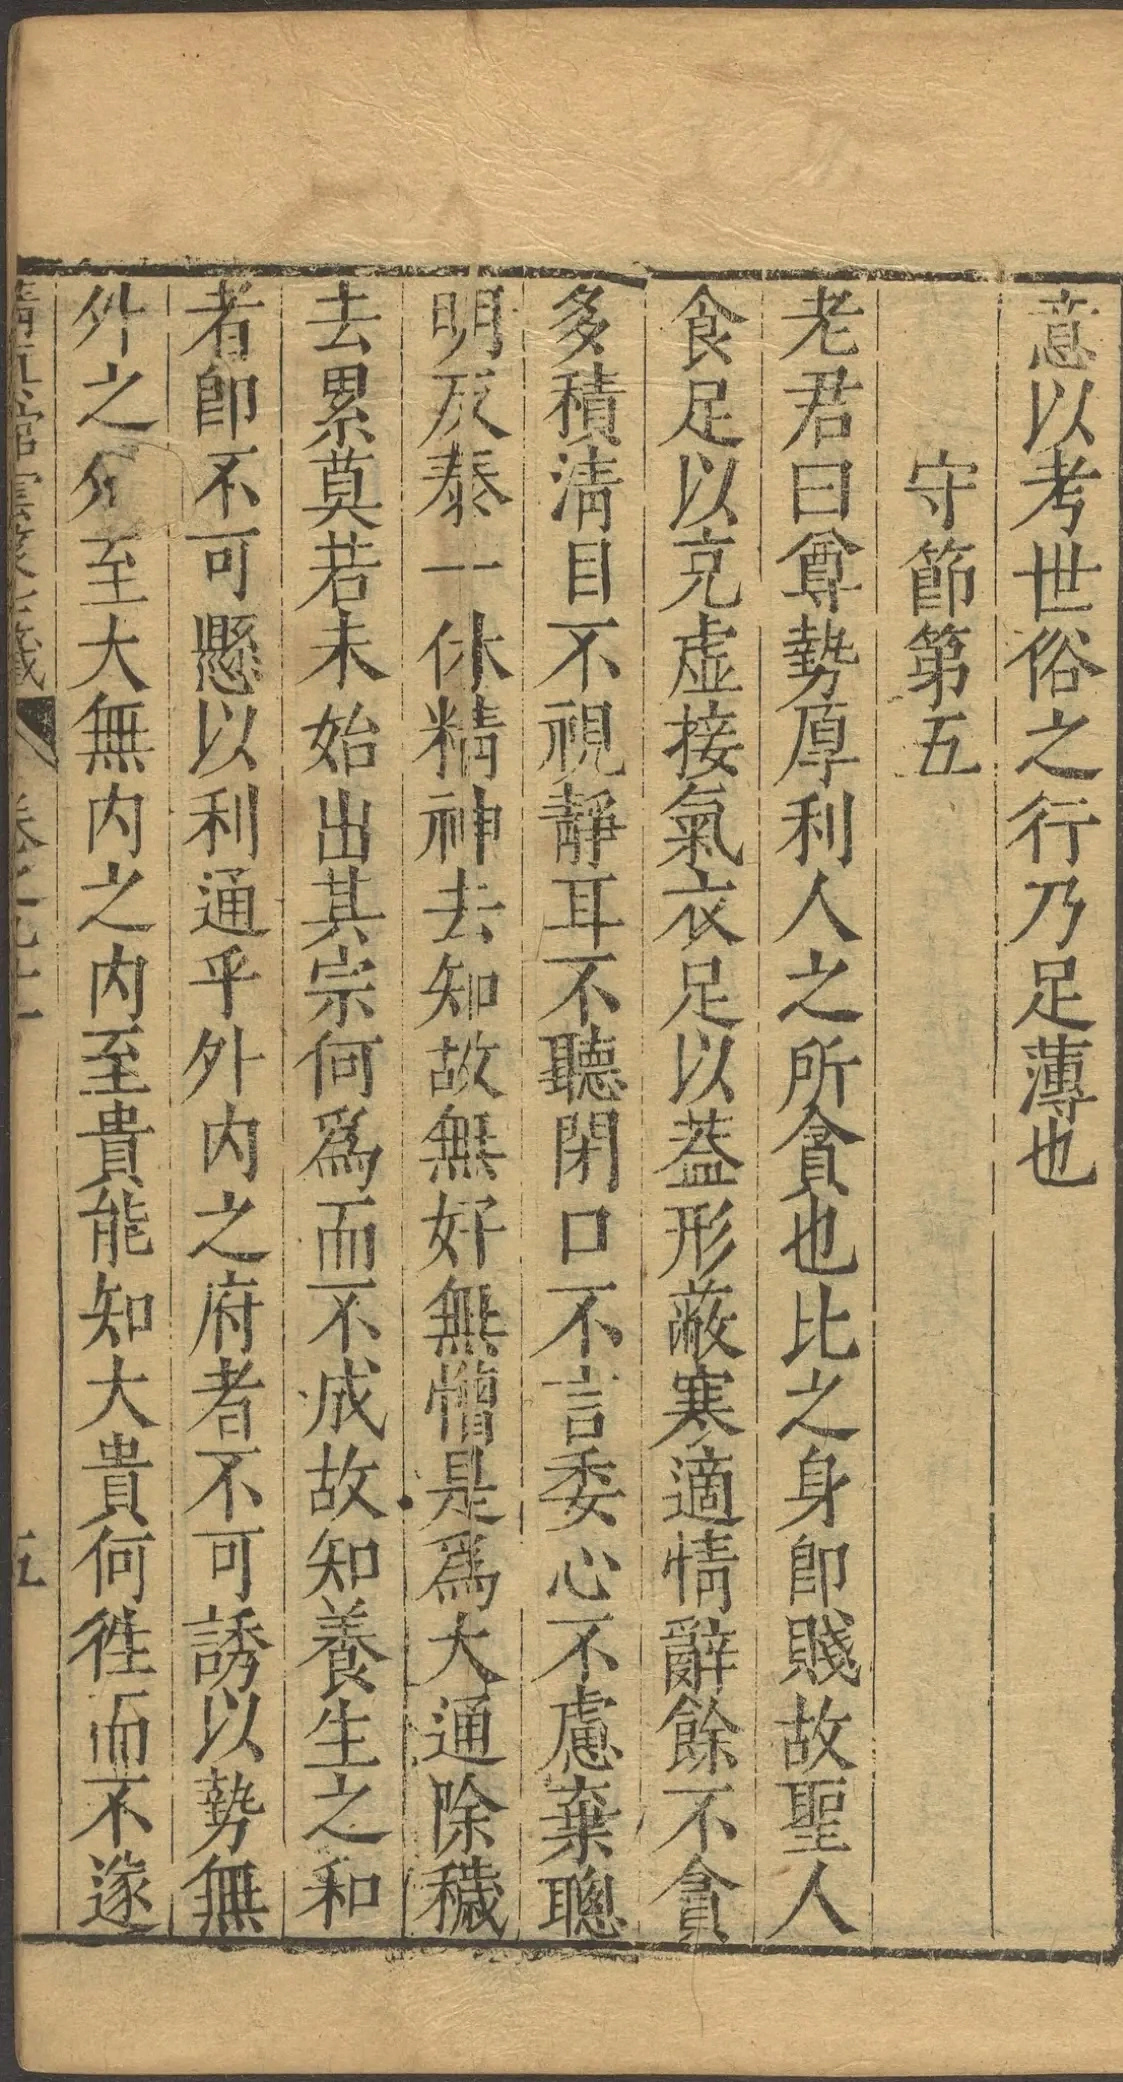 意以考世俗之行乃足薄也
守節第五
老君曰尊勢厚利人之所貪也比之身卽賤故聖人
食足以充虛接氣衣足以蓋形蔽寒適情辭餘不貪
多積淸目不視靜耳不聽閉口不言委心不慮棄聰
明反泰一休精神去知故無好無憎是爲大通除穢
去累莫若未始出其宗何爲而不成故知養生之和
者卽不可懸以利通乎外内之府者不可誘以勢無
外之外至大無内之内至貴能知大貴何徃而不遂
五